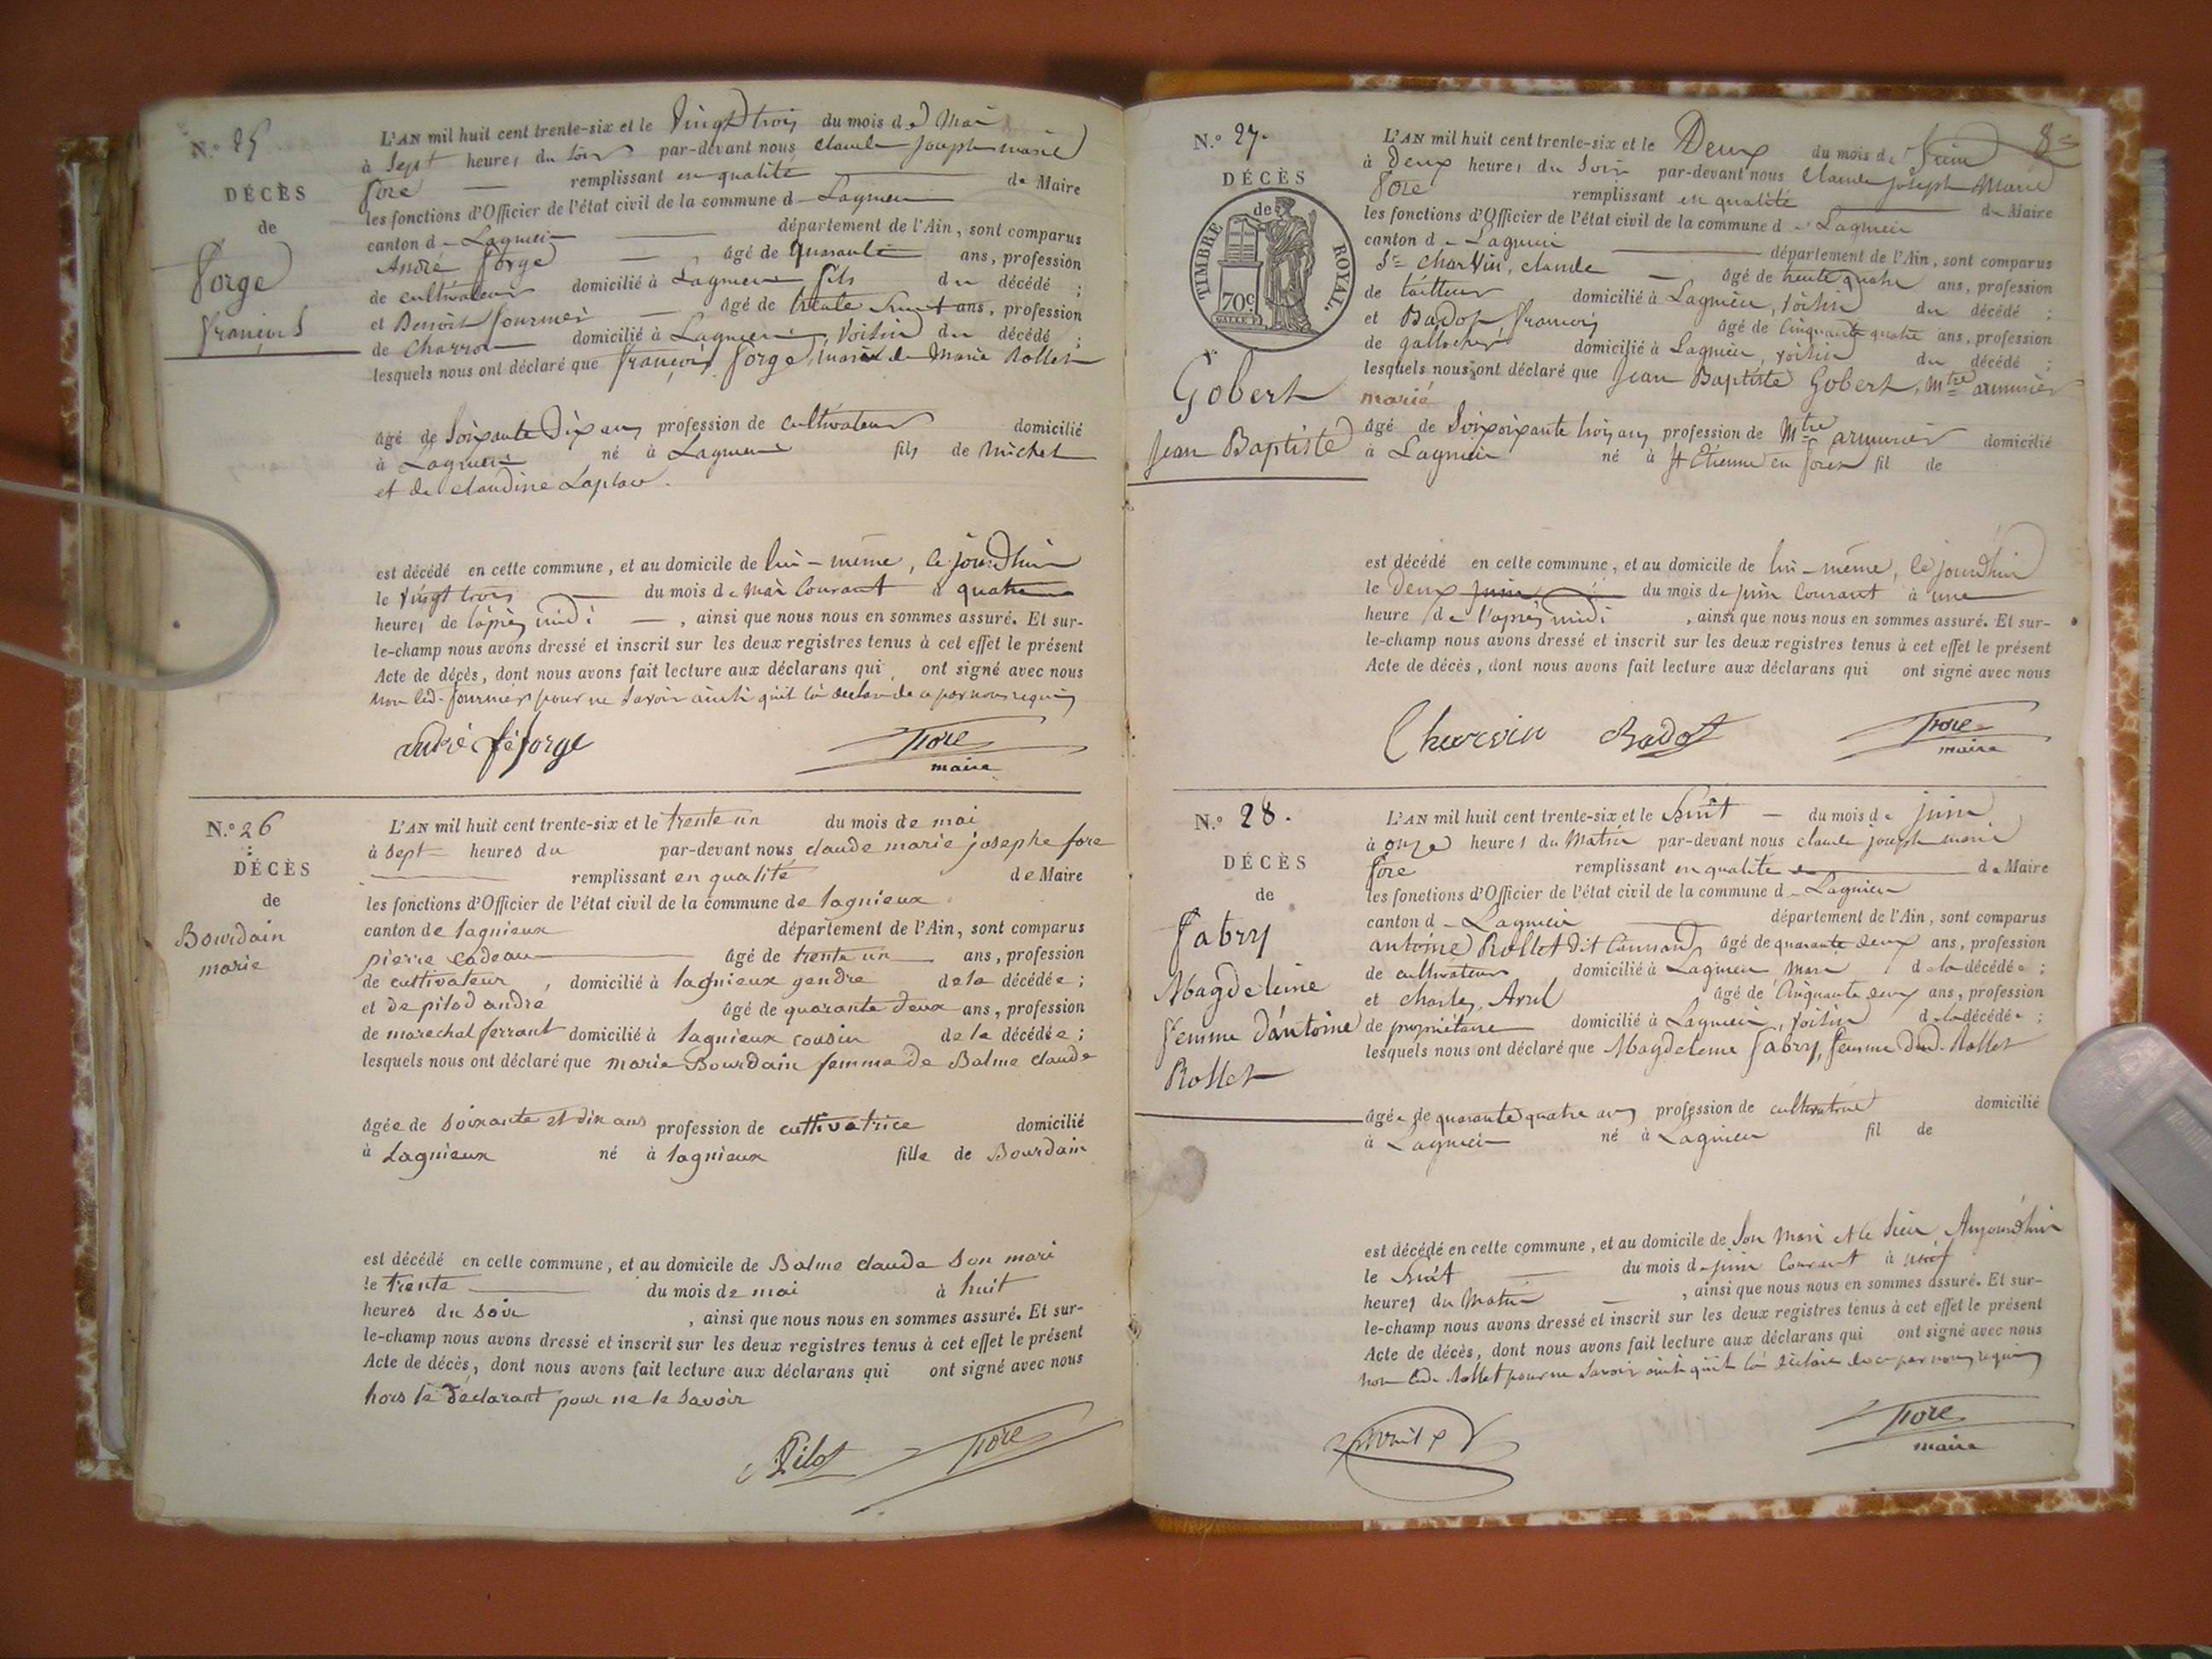 N.º 25
DÉCÈS
de
Forge
françois
L'AN mil huit cent trente-six et le Vingt trois du mois de Mai
à Sept heures du soir par-devant nous claude joseph marie
fore remplissant en qualité de Maire
les fonctions d'Officier de l'état civil de la commune de Lagnieu
canton de Lagnieu département de l'Ain, sont comparus
André forge âgé de quarante ans, profession
de cultivateur domicilié à Lagnieu fils du décédé ;
et Benoît fournier âgé de trente huit ans, profession
de charron domicilié à Lagnieu, voisin du décédé ;
lesquels nous ont déclaré que françois forge, mari de Marie Rollet
âgé de soixante dix ans profession de cultivateur domicilié
à Lagnieu né à Lagnieu fils de michel
et de claudine Laplace.
est décédé en cette commune, et au domicile de lui-même, cejourdhui
le vingt trois du mois de mai courant à quatre
heures de l'après midi , ainsi que nous nous en sommes assuré. Et sur-
le-champ nous avons dressé et inscrit sur les deux registres tenus à cet effet le présent
Acte de décès, dont nous avons fait lecture aux déclarans qui ont signé avec nous
non led. fournier pour ne savoir ainsi quil la déclaré de ce par nous requis
andré forge fore
maire
N.º 26
DÉCÈS
de
Bourdain
marie
L'AN mil huit cent trente-six et le trente un du mois de mai
à sept heures du par-devant nous claude marie josephe fore
remplissant en qualité de Maire
les fonctions d'Officier de l'état civil de la commune de lagnieux
canton de lagnieux département de l'Ain, sont comparus
pierre cadeau âgé de trente un ans, profession
de cultivateur , domicilié à lagnieux gendre de la décédée ;
et de pilod andre âgé de quarante deux ans, profession
de marechal ferrant domicilié à lagnieux cousin de la décédée ;
lesquels nous ont déclaré que marie Bourdain femme de Balme claude
âgée de soixante et dix ans profession de cultivatrice domicilié
à Lagnieux né à lagnieux fille de Bourdain
est décédé en cette commune, et au domicile de Balme claude son mari
le trente du mois de mai à huit
heures du soir , ainsi que nous nous en sommes assuré. Et sur-
le-champ nous avons dressé et inscrit sur les deux registres tenus à cet effet le présent
Acte de décès, dont nous avons fait lecture aux déclarans qui ont signé avec nous
hors le déclarant pour ne le savoir
Pilot fore
N.º 27.
DÉCÈS
de
TIMBRE ROYAL.
70c
Gobert
Jean Baptiste
L'AN mil huit cent trente-six et le Deux du mois de Juin
à deux heures du soir par-devant nous claude joseph Marie
fore remplissant en qualité de Maire
les fonctions d'Officier de l'état civil de la commune de Lagnieu
canton de Lagnieu département de l'Ain, sont comparus
Sr. charvin, claude âgé de trente quatre ans, profession
de tailleur domicilié à Lagnieu, voisin du décédé ;
et Badot, françois âgé de cinquante quatre ans, profession
de domicilié à Lagnieu, voisin du décédé ;
lesquels nous ont déclaré que Jean Baptiste Gobert, Mtre armurier
marié
âgé de Soixoixante trois ans profession de Mtre armurier domicilié
à Lagnieu né à St Etienne en forez fil de
est décédé en cette commune, et au domicile de lui-même, cejourdhui
le Deux juin du mois de juin courant à une
heure de l'après midi , ainsi que nous nous en sommes assuré. Et sur-
le-champ nous avons dressé et inscrit sur les deux registres tenus à cet effet le présent
Acte de décès, dont nous avons fait lecture aux déclarans qui ont signé avec nous
Charvin Badot fore
maire
N.º 28.
DÉCÈS
de
fabry
Magdeleine
femme d'antoine
Rollet
L'AN mil huit cent trente-six et le huit du mois de juin
à onze heures du matin par-devant nous claude joseph marie
fore remplissant en qualité de Maire
les fonctions d'Officier de l'état civil de la commune de Lagnieu
canton de Lagnieu département de l'Ain, sont comparus
antoine Rollet dit âgé de quarante deux ans, profession
de cultivateur domicilié à Lagnieu Mari de la décédée ;
et charles Avril âgé de cinquante deux ans, profession
de propriétaire domicilié à Lagnieu, voisin de la décédée ;
lesquels nous ont déclaré que Magdeleine fabry, femme dud. Rollet
âgée de quarante quatre ans profession de cultivatrice domicilié
à Lagnieu né à Lagnieu fil de
est décédé en cette commune, et au domicile de son mari et le sien, Aujourdhui
le huit du mois de juin courant à neuf
heures du matin , ainsi que nous nous en sommes assuré. Et sur-
le-champ nous avons dressé et inscrit sur les deux registres tenus à cet effet le présent
Acte de décès, dont nous avons fait lecture aux déclarans qui ont signé avec nous
non led. Rollet pour ne savoir ainsi quil la déclaré de ce par nous requis
avril fore
maire